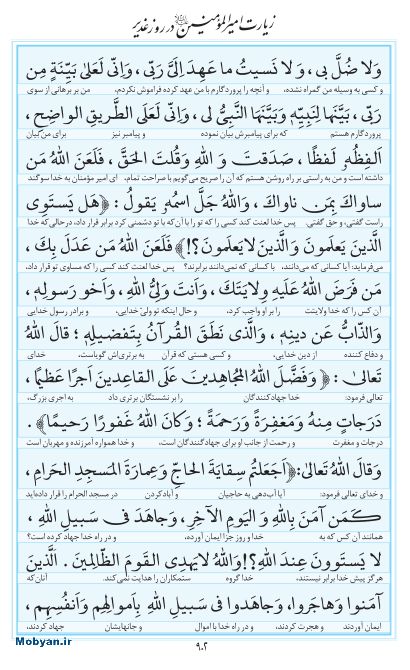 زیارت امیرالمؤمنین در روز غدیر
وَلا ضُلَّ بی، وَلا نَسیتُ ما عَهِدَ اِلَیَّ رَبّی، وَاِنّی لَعَلیٰ بَیِّنَةٍ مِن
و کسی به وسیله من گمراه نشده، و آنچه را پروردگارم با من عهد کرده فراموش نکردم، من بر برهانی از سوی
رَبّی، بَیَّنَها لِنَبِیِّهٖ وَبَیَّنَهَا النَّبِیُّ لی، وَاِنّی لَعَلَی الطَّریقِ الواضِحِ،
پروردگارم هستم که برای پیامبرش بیان نموده و پیامبر نیز برای من بیان
اَلفِظُهٗ لَفظًا، صَدَقتَ وَاللهِ وَقُلتَ الحَقَّ، فَلَعَنَ اللهُ مَن
داشته است و من به راستی بر راه روشن هستم که آن را صریح می‌گویم با صراحت تمام، ای امیر مؤمنان به خدا سوگند
ساواكَ بِمَن ناواكَ، وَاللهُ جَلَّ اسمُهٗ یَقولُ: ﴿هَل یَستَوِی
راست گفتی، و حق گفتی. پس خدا لعنت کند کسی را که تو را با آن‌که با تو دشمنی کرد برابر قرار داد، درحالی‌که خدا
الَّذینَ یَعلَمونَ وَالَّذینَ لایَعلَمونَ؟!﴾ فَلَعَنَ اللهُ مَن عَدَلَ بِكَ،
می‌فرماید: آیا کسانی که می‌دانند، با کسانی که نمی‌دانند برابرند؟ پس خدا لعنت کند کسی را که مساوی تو قرار داد،
مَن فَرَضَ اللهُ عَلَیهِ وِلایَتَكَ، وَاَنتَ وَلِیُّ اللهِ، وَاَخو رَسولِهٖ،
آن کس را که خدا ولایتت را بر او واجب کرد، و حال اینکه تو ولیّ خدایی، و برادر رسول خدایی
وَالذّابُّ عَن دینِهٖ، وَالَّذی نَطَقَ القُرآنُ بِتَفضیلِهٖ؛ قالَ اللهُ
و دفاع کننده از دین خدایی، و کسی هستی که قرآن به برتری‌اش گویاست. خدای
تَعالیٰ: ﴿وَفَضَّلَ اللهُ المُجاهِدینَ عَلَی القاعِدینَ اَجرًا عَظیمًا،
تعالی فرمود: خدا جهادکنندگان را بر نشستگان برتری داد به اجری بزرگ،
دَرَجاتٍ مِنهُ وَمَغفِرَةً وَرَحمَةً؛ وَکانَ اللهُ غَفورًا رَحیمًا﴾.
درجات و مغفرت و رحمت از جانب او برای جهادکنندگان است، و خدا همواره آمرزنده و مهربان است
وَقالَ اللهُ تَعالیٰ: ﴿اَجَعَلتُم سِقایَةَ الحاجِّ وَعِمارَةَ المَسجِدِ الحَرامِ،
و خدای تعالی فرمود: آیا آب‌دهی به حاجیان و آبادکردن مسجد الحرام را قرار داده‌اید
کَمَن آمَنَ بِاللهِ وَالیَومِ الآخِرِ، وَجاهَدَ فی سَبیلِ اللهِ،
همانند آن کس که به خدا و روز جزا ایمان آورده، و در راه خدا جهاد کرده است؟
لا یَستَوونَ عِندَ اللهِ؟! وَاللهُ لایَهدِی القَومَ الظّالِمینَ. اَلَّذینَ
هرگز پیش خدا برابر نیستند، خدا گروه ستمکاران را هدایت نمی‌کند. آنان‌که
آمَنوا وَهاجَروا، وَجاهَدوا فی سَبیلِ اللهِ بِاَموالِهِم وَاَنفُسِهِم،
ایمان آوردند و هجرت کردند، و در راه خدا با اموال و جانهایشان جهاد کردند،
۹۰۲
Mobyan.ir